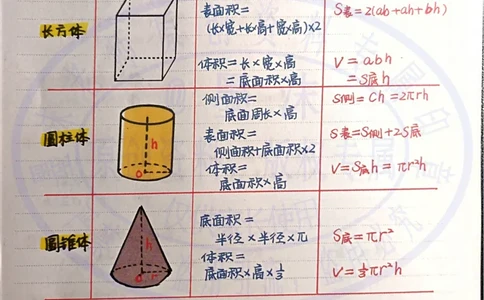 长方体
表面积=
(长×宽+长×高+宽×高)×2
体积=长×宽×高
=底面积×高
S表=2(ab+ah+bh)
V=abh
=S底h
圆柱体
h
o
侧面积=
底面周长×高
表面积=
侧面积+底面积×2
体积=
底面积×高
S侧=Ch=2πrh
S表=S侧+2S底
V=S底h=πr²h
圆锥体
h
底面积=
半径×半径×π
体积=
底面积×高×1/3
S底=πr²
V=1/3πr²h